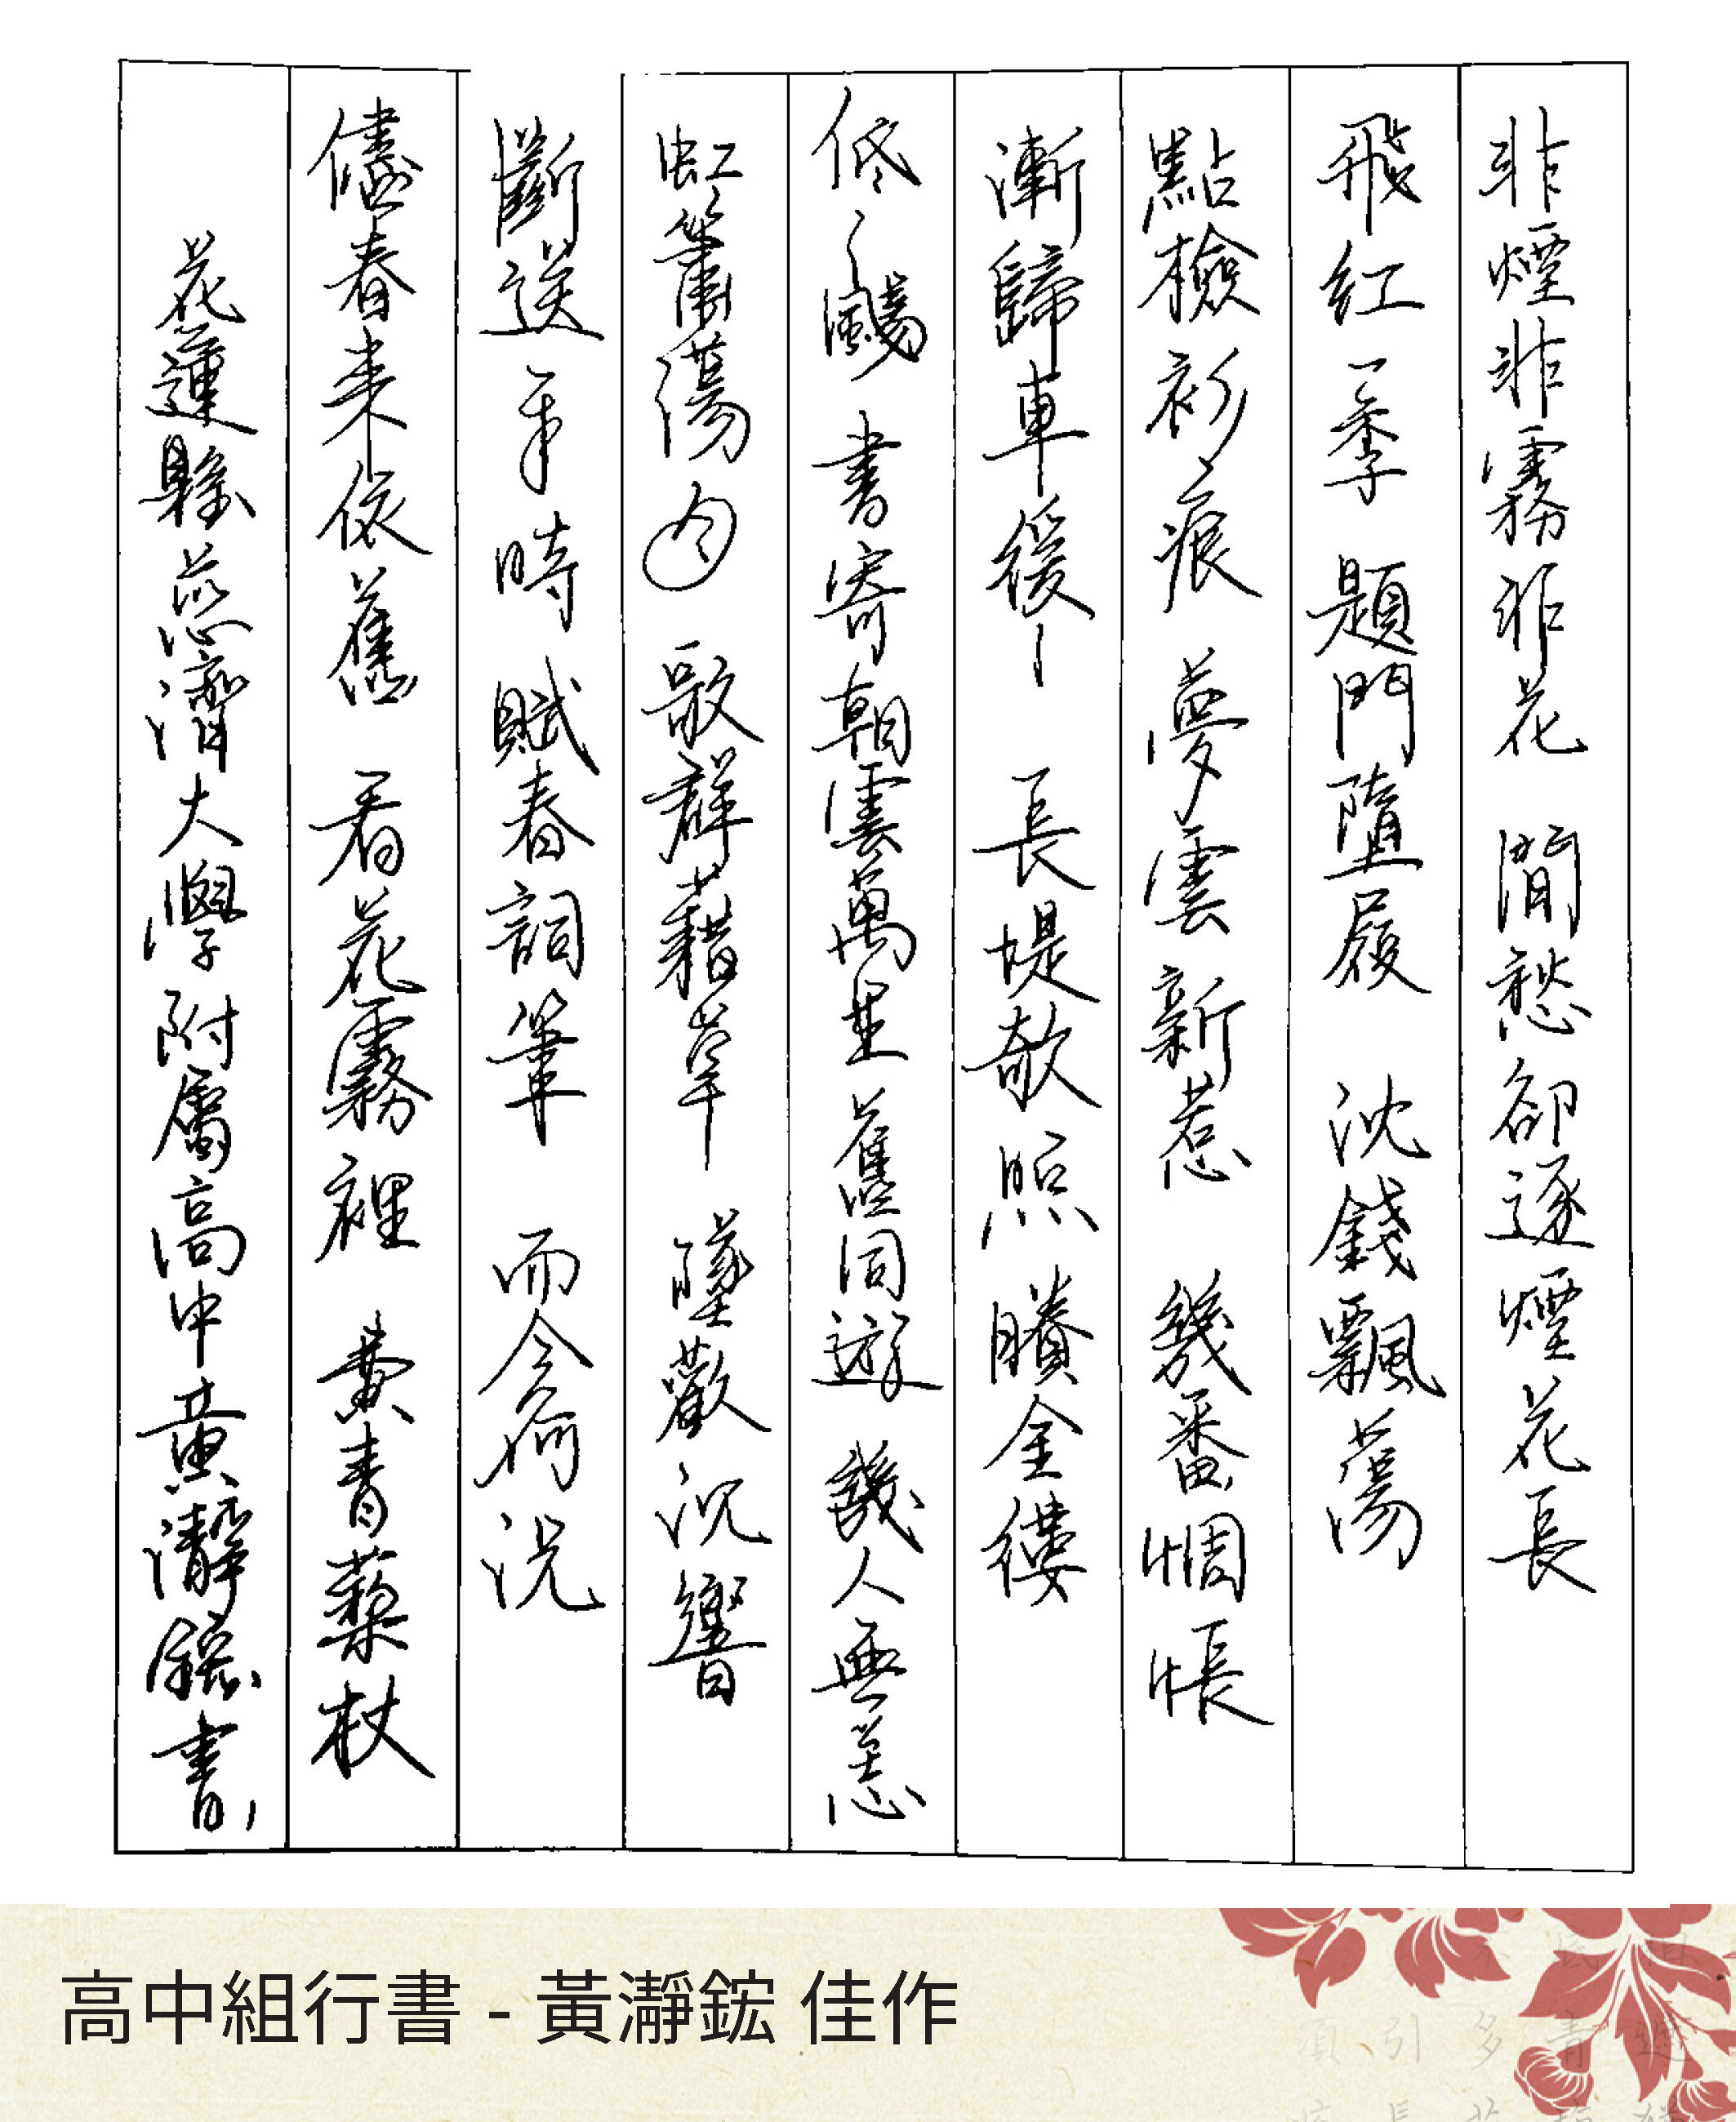 非煙非霧非花 閒愁卻逐煙花長
飛紅季 題門墮履 沈錢飄蕩
點檢衫痕 夢雲新惹 幾番惆悵
漸歸車緩 長堤欹照 賸金縷
低低颺 書寄朝雲萬里 舊同遊 幾人無恙
虹簫蕩 歌群藉草 墜歡沉響
斷送年時 賦春詞筆 而今何況
儘春來依舊 看花霧裡 費青藜杖
花蓮縣慈濟大學附屬高中黃瀞鋐書
高中組行書 - 黃瀞鋐 佳作